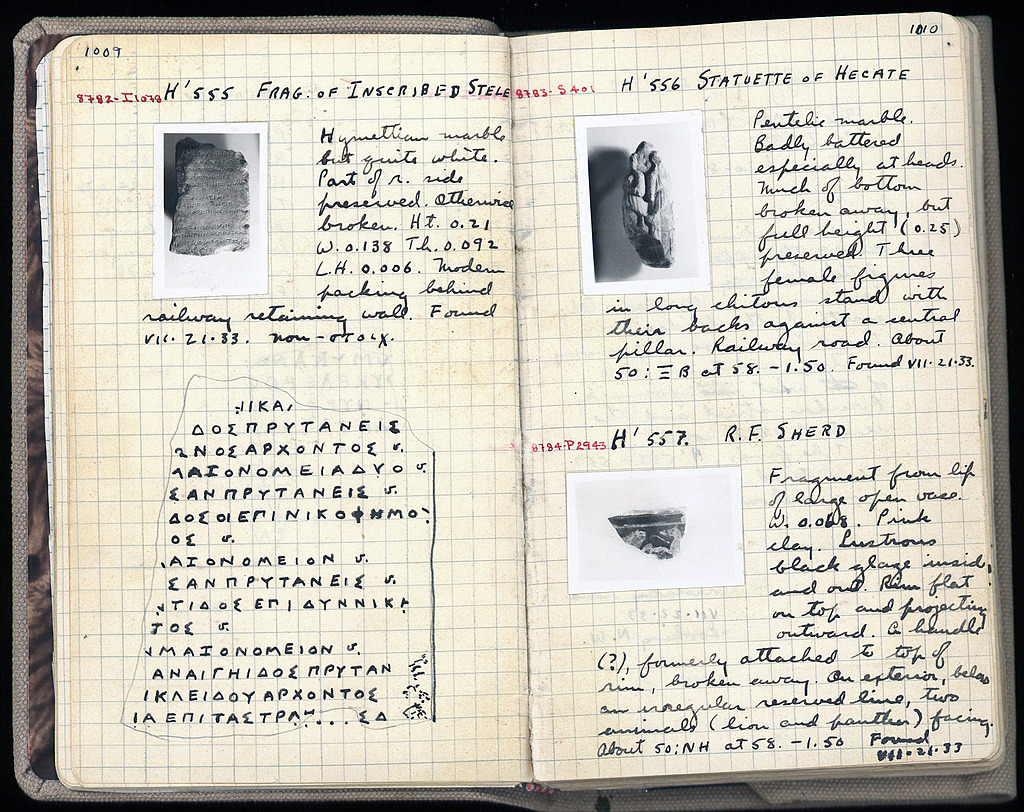 1009
8782-I1079 H'555 FRAG. OF INSCRIBED STELE
Hymettian marble
but quite white.
Part of r. side
preserved. Otherwise
broken. Ht. 0.21
W. 0.138 Th. 0.092
L.H. 0.006. Modern
packing behind
railway retaining wall. Found
VII. 21. 33. non-στοιχ.
ΙΙΚΑ
ΔΟΣΠΡΥΤΑΝΕΙΣ
ΝΟΣΑΡΧΟΝΤΟΣ v.
ΑΙΟΝΟΜΕΙΑΔΥΟ v.
ΣΑΝΠΡΥΤΑΝΕΙΣ v.
ΔΟΣΟΙΕΠΙΝΙΚΟΦΗΜΟ
ΟΣ v.
ΑΙΟΝΟΜΕΙΟΝ v.
ΣΑΝΠΡΥΤΑΝΕΙΣ v.
ΤΙΔΟΣΕΠΙΔΥΝΝΙΚΗ
ΤΟΣ v.
ΜΑΙΟΝΟΜΕΙΟΝ v.
ΑΝΑΙΓΗΙΔΟΣΠΡΥΤΑΝ
ΙΚΛΕΙΔΟΥΑΡΧΟΝΤΟΣ
ΙΑΕΠΙΤΑΣΤΡΑ....ΣΔ
1010
8783-S401 H'556 STATUETTE OF HECATE
Pentelic marble.
Badly battered
especially at heads.
Much of bottom
broken away, but
full height (0.25)
preserved. Three
female figures
in long chitons stand with
their backs against a central
pillar. Railway road. About
50:ΞB at 58. -1.50. Found VII-21-33.
8784-P2943 H'557. R.F. SHERD
Fragment from lip
of large open vase.
W. 0.068. Pink
clay. Lustrous
black glaze inside
and out. Rim flat
on top and projecting
outward. A handle
(?), formerly attached to top of
rim, broken away. On exterior, below
an irregular reserved line, two
animals (lion and panther) facing.
About 50:NH at 58. -1.50 Found
VII-21-33